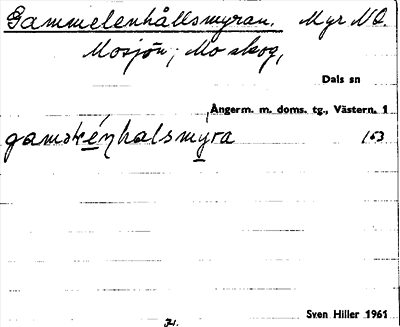 Gammelenhållsmyran. Myr NO.
Mosjön; Mo skog,
Dals sn
Ångerm. m. doms. tg., Västern. 1
163
Sven Hiller 1961